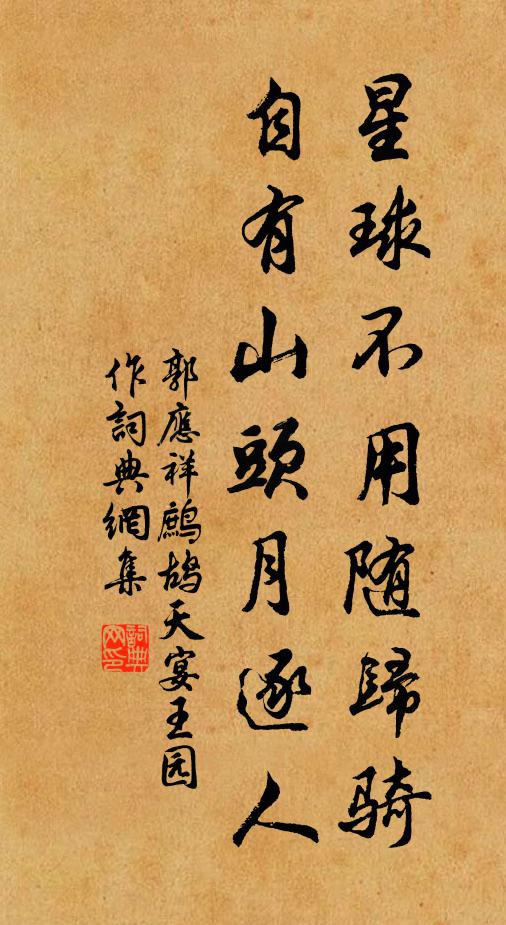 星球不用随歸骑
自有山頭月逐人
郭應祥鷓鴣天宴王园
作詞典網集
詞典網印